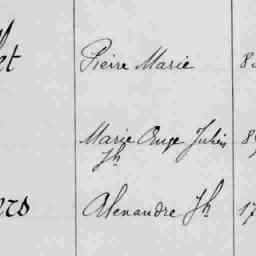 et Pierre Marie 8
Marie Ange Julien 89
Jh
ers Alexandre Jh 17